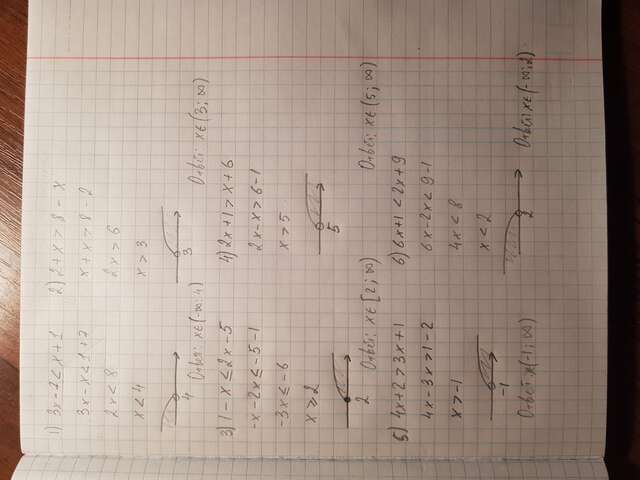 1) 3x-7<x+1
3x-x<1+7
2x<8
x<4
4
Ответ: x∈(-∞; 4)
2) 2+x>8-x
x+x>8-2
2x>6
x>3
3
Ответ: x∈(3; ∞)
3) 1-x≤2x-5
-x-2x≤-5-1
-3x≤-6
x≥2
2
Ответ: x∈[2; ∞)
4) 2x+1>x+6
2x-x>6-1
x>5
5
Ответ: x∈(5; ∞)
5) 4x+2>3x+1
4x-3x>1-2
x>-1
-1
Ответ: x(-1; ∞)
6) 6x+1<2x+9
6x-2x<9-1
4x<8
x<2
2
Ответ: x∈(-∞; 2)